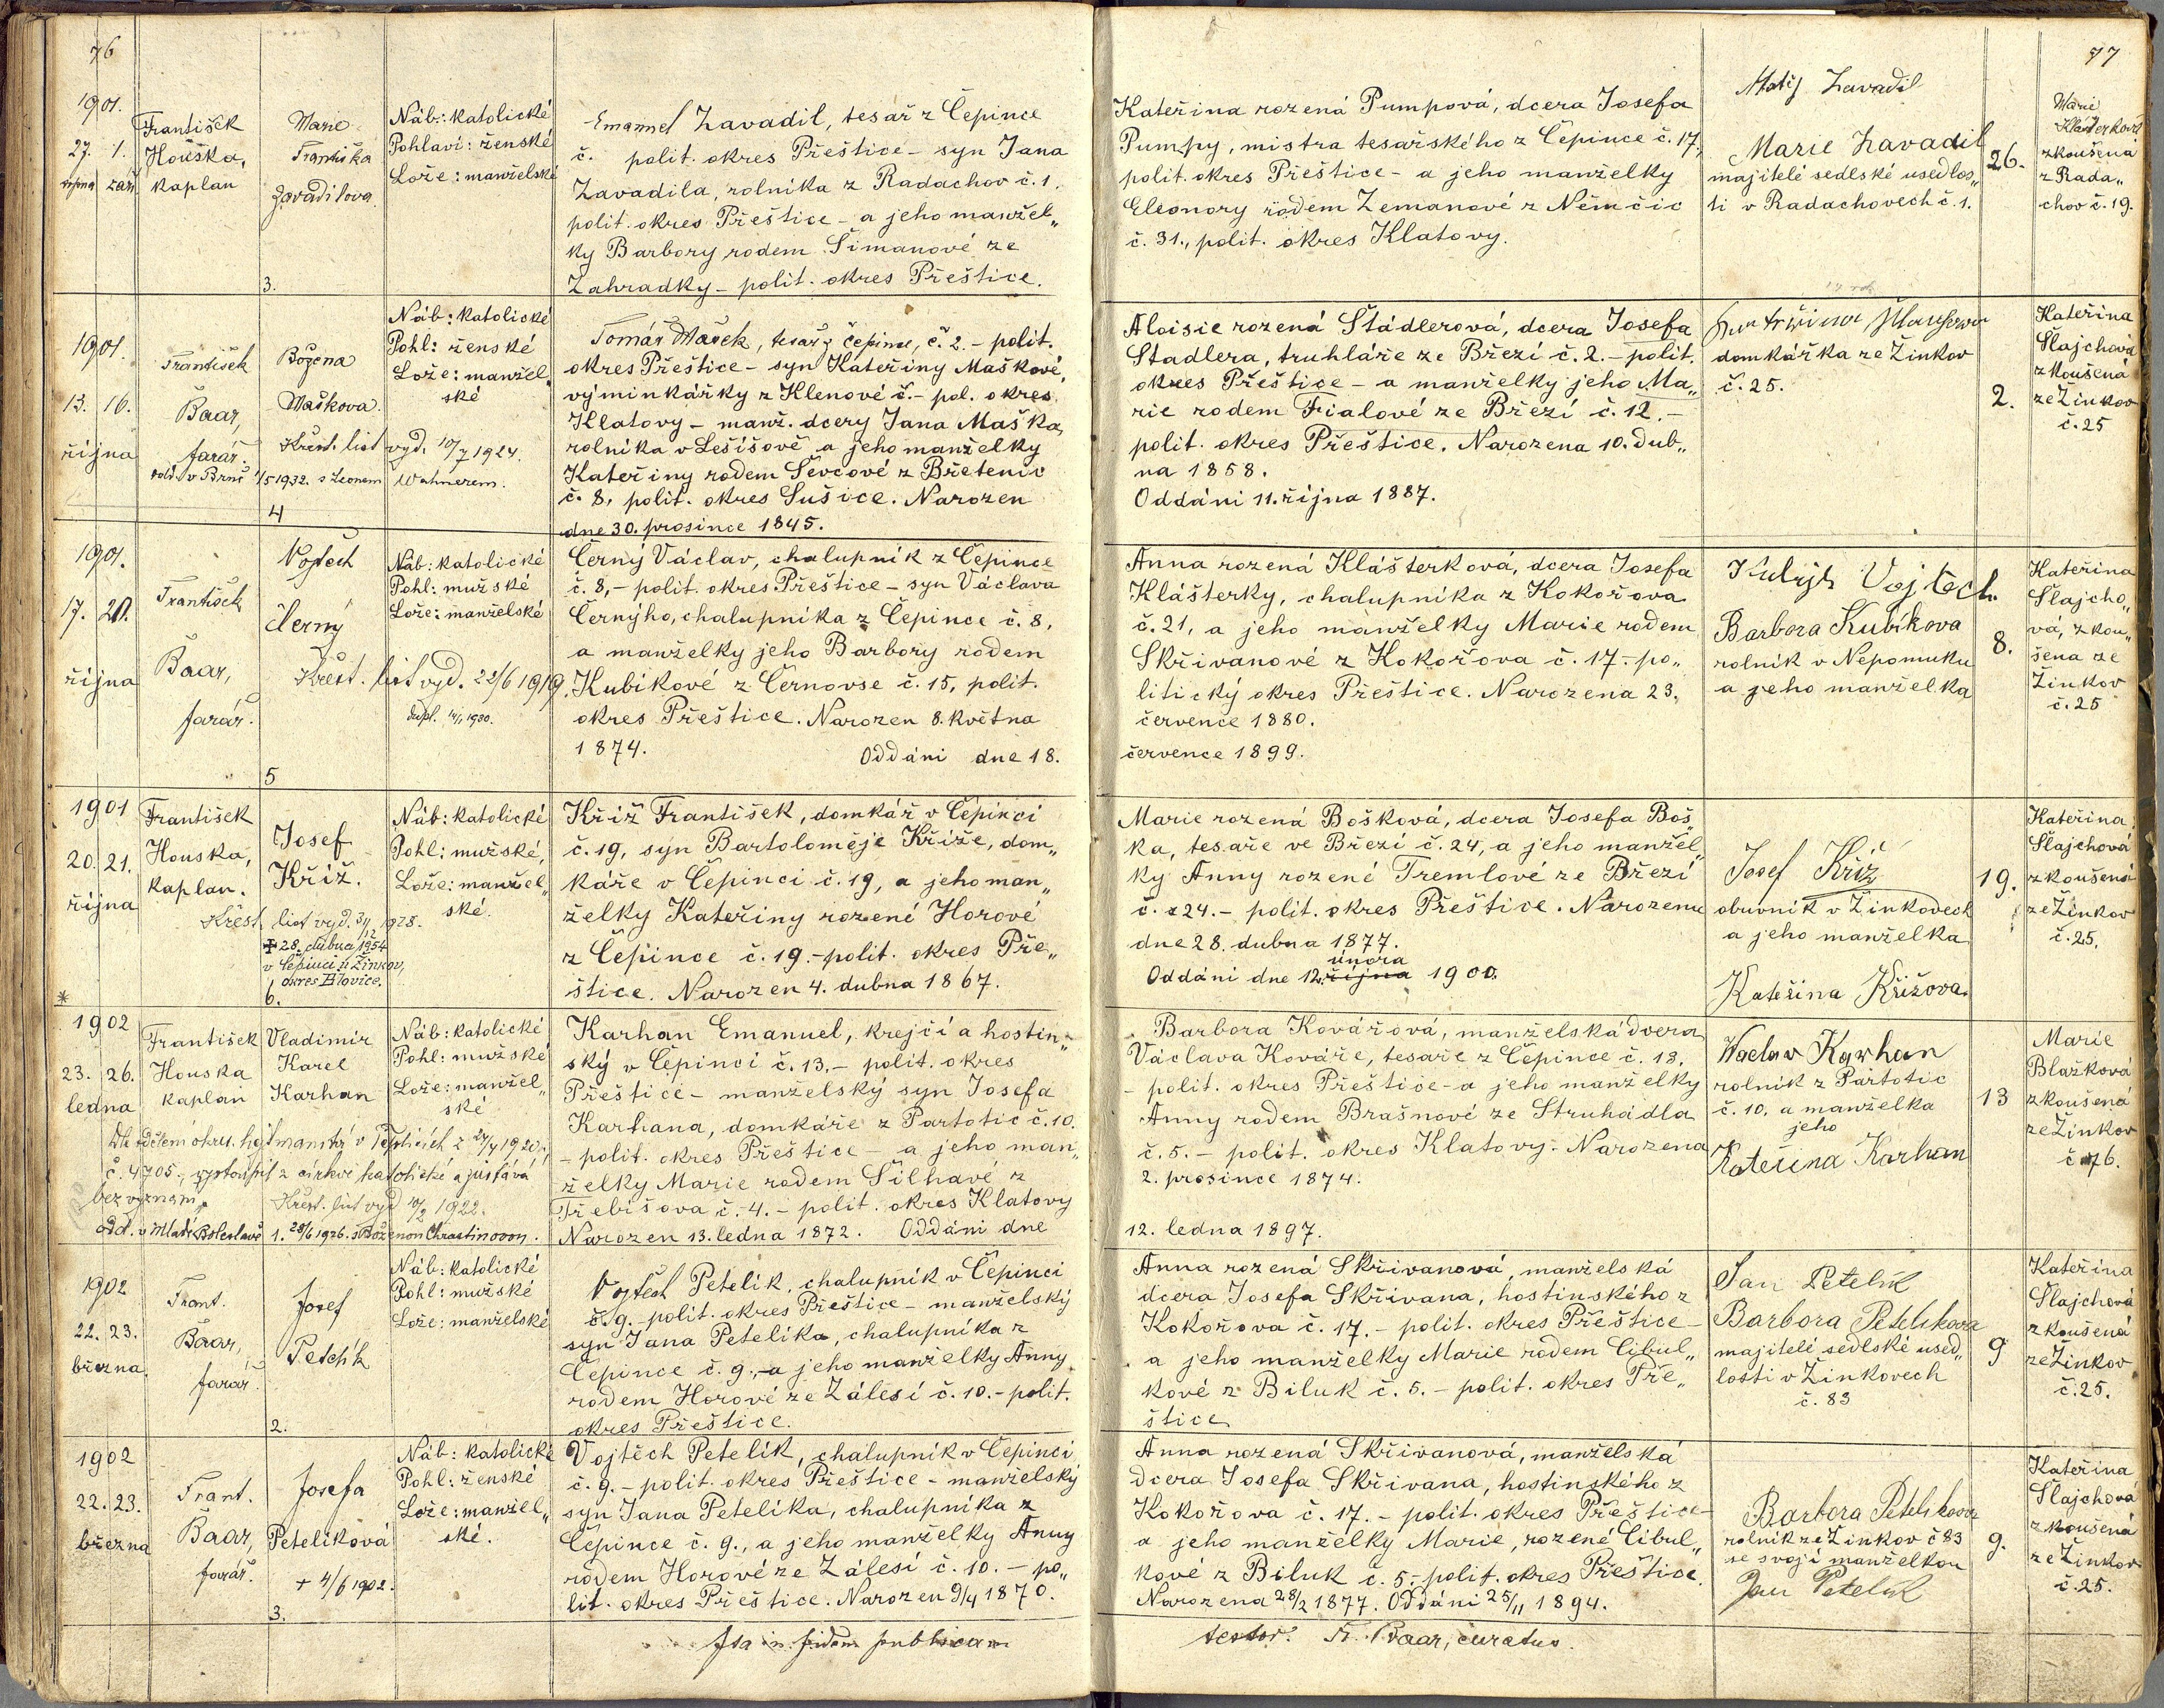 76
1901.
27. 1.
srpna září
František
Houska,
kaplan
Marie
Františka
Zavadilova.
3.
Náb.: katolické
Pohlaví: ženské
Lože: manželské
Emanuel Zavadil, tesař z Čepince
č. polit. okres Přeštice - syn Jana
Zavadila, rolníka z Radachov č. 1.
polit. okres Přeštice - a jeho manžel„
ky Barbory rodem Šimanové ze
Zahradky - polit. okres Přeštice.
1901.
13. 16.
října
František
Baar,
farář.
Božena
Maškova.
Křest. list vyd. 10/7 1924.
odd. v Brně 1/5 1932. s Leonem Wahnerem.
4
Náb: katolické
Pohl: ženské
Lože: manžel„
ské
Tomáš Mašek, tesař z Čepince, č. 2. - polit.
okres Přeštice - syn Kateřiny Maškové,
výminkářky z Klenové č. - pol. okres
Klatovy - manž. dcery Jana Maška,
rolníka v Lešišově a jeho manželky
Kateřiny rodem Ševcové z Břetenic
č. 8, polit. okres Sušice. Narozen
dne 30. prosince 1845.
1901.
17. 20.
října
František
Baar,
farář.
Vojtěch
Černý
Křest. list vyd. 22/6 1919.
dupl. 14/1 1930.
5
Náb: katolické
Pohl: mužské
Lože: manželské
Černý Václav, chalupník z Čepince
č. 8, - polit. okres Přeštice - syn Václava
Černýho, chalupníka z Čepince č. 8,
a manželky jeho Barbory rodem
Kubíkové z Černovse č. 15, polit.
okres Přeštice. Narozen 8. května
1874. Oddáni dne 18.
1901
20. 21.
října
František
Houska,
kaplan.
Josef
Kříž.
Křest. list vyd. 3/12 1928.
✠ 28. dubna 1954
v Čepinci u Žinkov,
okres Blovice.
6.
Náb: katolické
Pohl: mužské,
Lože: manžel„
ské.
Kříž František, domkář v Čepinci
č. 19, syn Bartoloměje Kříže, dom„
káře v Čepinci č. 19, a jeho man„
želky Kateřiny rozené Horové
z Čepince č. 19. - polit. okres Pře„
štice. Narozen 4. dubna 1867.
*
1902
23. 26.
ledna
František
Houska
kaplan
Vladimír
Karel
Karhan
Náb: katolické
Pohl: mužské
Lože: manžel„
ské
Dle sdělení okres. hejtmanství v Teplicích z 24/4 1920,
č. 4705., vystoupil z církve katolické a zůstává
bez vyznamu
Křest. list vyd 10/2 1922.
odd. v Mladé Boleslavě 1. 28/6 1926. s Boženou Chrastinovou.
Karhan Emanuel, krejčí a hostin„
ský v Čepinci č. 13. - polit. okres
Přeštice - manželský syn Josefa
Karhana, domkáře z Partotic č. 10.
- polit. okres Přeštice - a jeho man„
želky Marie rodem Šilhavé z
Třebišova č. 4. - polit. okres Klatovy
Narozen 13. ledna 1872. Oddáni dne
1902
22. 23.
března
Frant.
Baar,
farář.
Josef
Petelík
2.
Náb: katolické
Pohl: mužské
Lože: manželské
Vojtěch Petelík, chalupník v Čepinci
č. 9. - polit. okres Přeštice - manželský
syn Jana Petelíka, chalupníka z
Čepince č. 9., - a jeho manželky Anny
rodem Horové ze Zálesí č. 10. - polit.
okres Přeštice.
1902
22. 23.
března
Frant.
Baar,
farář.
Josefa
Petelíková
+ 4/6 1902.
3.
Náb: katolické
Pohl: ženské
Lože: manžel„
ské.
Vojtěch Petelík, chalupník v Čepinci
č. 9. - polit. okres Přeštice - manželský
syn Jana Petelíka, chalupníka z
Čepince č. 9., a jeho manželky Anny
rodem Horové ze Zálesí č. 10. - po„
lit. okres Přeštice. Narozen 9/4 1870.
Ita in fidem publicam
77
Kateřina rozená Pumpová, dcera Josefa
Pumpy, mistra tesařského z Čepince č. 17,
polit. okres Přeštice - a jeho manželky
Eleonory rodem Zemanové z Němčic
č. 31., polit. okres Klatovy.
Matěj Zavadil
Marie Zavadil
majitelé sedlské usedlos„
ti v Radachovech č. 1.
26.
Marie
Klášterková
zkoušená
z Rada„
chov č. 19.
Aloisie rozená Stádlerová, dcera Josefa
Stadlera, truhláře ze Březí č. 2. - polit.
okres Přeštice - a manželky jeho Ma„
rie rodem Fialové ze Březí č. 12. -
polit. okres Přeštice. Narozena 10. dub„
na 1858.
Oddáni 11. října 1887.
domkářka ze Žinkov
č. 25.
2.
Kateřina
Šlajchová
zkoušená
ze Žinkov
č. 25
Anna rozená Klášterková, dcera Josefa
Klášterky, chalupníka z Kokořova
č. 21, a jeho manželky Marie rodem
Skřivanové z Kokořova č. 17. - po„
litický okres Přeštice. Narozena 23.
července 1880.
července 1899.
Kubík Vojtěch.
Barbora Kubíkova
rolník v Nepomuku
a jeho manželka
8.
Kateřina
Šlajcho„
vá, zkou„
šena ze
Žinkov
č. 25
Marie rozená Bošková, dcera Josefa Boš„
ka, tesaře ve Březí č. 24, a jeho manžel„
ky Anny rozené Tremlové ze Březí
č. 24. - polit. okres Přeštice. Narozena
dne 28. dubna 1877.
února
Oddáni dne 12. října 1900.
Josef Kříž
obuvník v Žinkovech
a jeho manželka
Kateřina Křižova.
19.
Kateřina
Šlajchová
zkoušená
ze Žinkov
č. 25.
Barbora Kovářová, manželská dcera
Václava Kováře, tesaře z Čepince č. 18.
- polit. okres Přeštice - a jeho manželky
Anny rodem Brašnové ze Struhadla
č. 5. - polit. okres Klatovy. Narozena
2. prosince 1874.
12. ledna 1897.
Waclaw Karhan
rolník z Partotic
č. 10, a manželka
jeho
Kateřina Karhan
13
Marie
Blažková
zkoušená
ze Žinkov
č. 76.
Anna rozená Skřivanová, manželská
dcera Josefa Skřivana, hostinského z
Kokořova č. 17. - polit. okres Přeštice -
a jeho manželky Marie rodem Cibul„
kové z Biluk č. 5. - polit. okres Pře„
štice
Jan Petelík
Barbora Petelikova
majitelé sedlské used„
losti v Žinkovech
č. 83
9
Kateřina
Šlajchová
zkoušená
ze Žinkov
č. 25.
Anna rozená Skřivanová, manželská
dcera Josefa Skřivana, hostinského z
Kokořova č. 17. - polit. okres Přeštice -
a jeho manželky Marie, rozené Cibul„
kové z Biluk č. 5. - polit. okres Přeštice.
Narozena 28/2 1877. Oddáni 25/11 1894.
Barbora Petelikova
rolník ze Žinkov č 83
se svojí manželkou
Jan Petelík
9.
Kateřina
Šlajchová
zkoušená
ze Žinkov
č. 25.
testor. Fr. Baar, curatus.